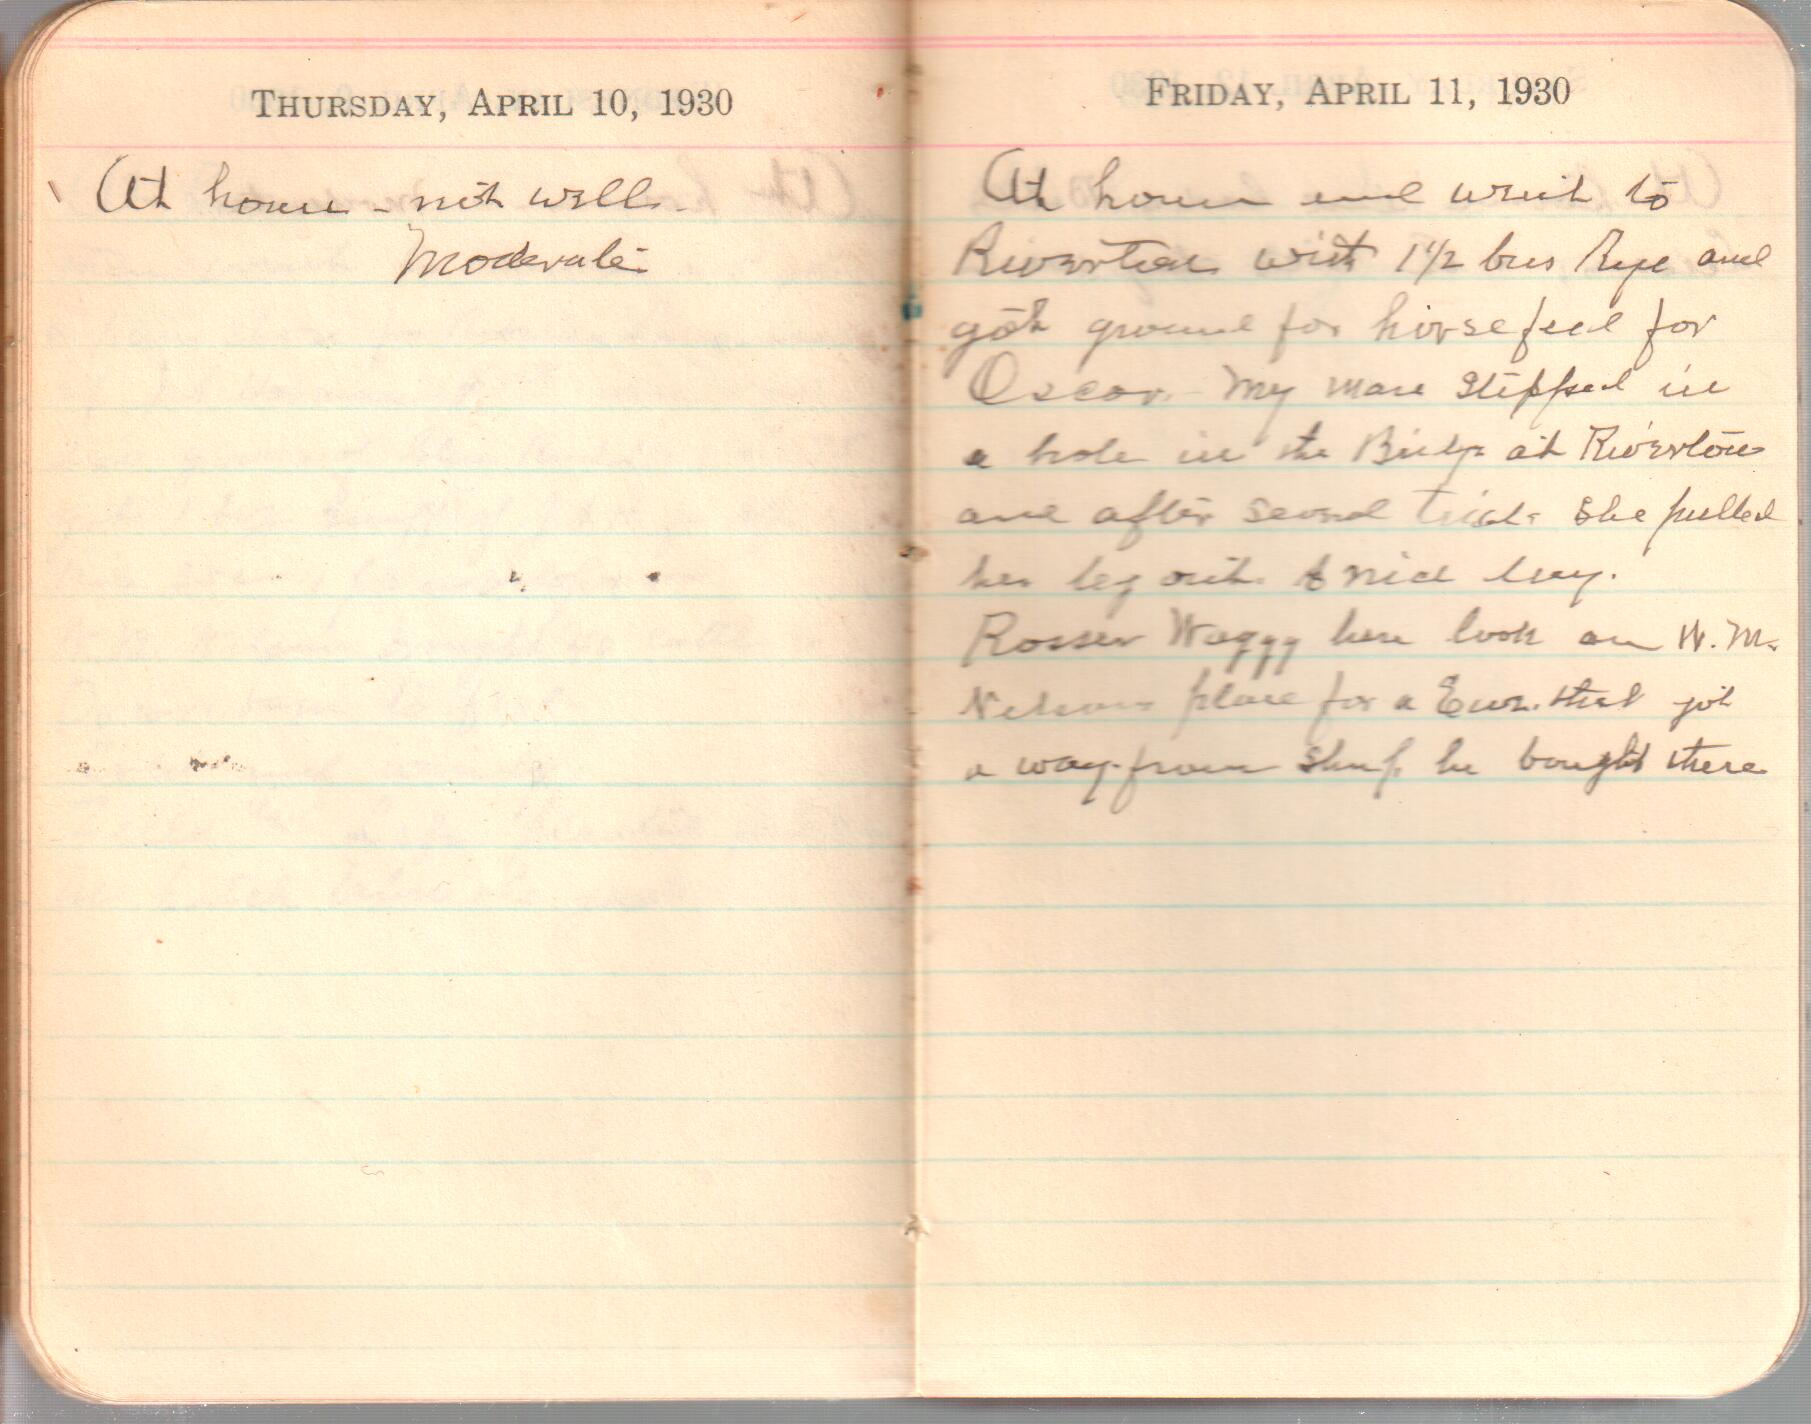 THURSDAY, APRIL 10, 1930
At home - not well.
Moderate
FRIDAY, APRIL 11, 1930
At home and went to
Riverton with 1 1/2 bus Rye and
got ground for horse feed for
Oscar. - My mare stepped in
a hole in the Bridge at Riverton
and after several trials she pulled
her leg out. A nice day.
Rosser Waggy here look on W. M.
Nelsons place for a Ewe. that got
a way from Sheep he bought there